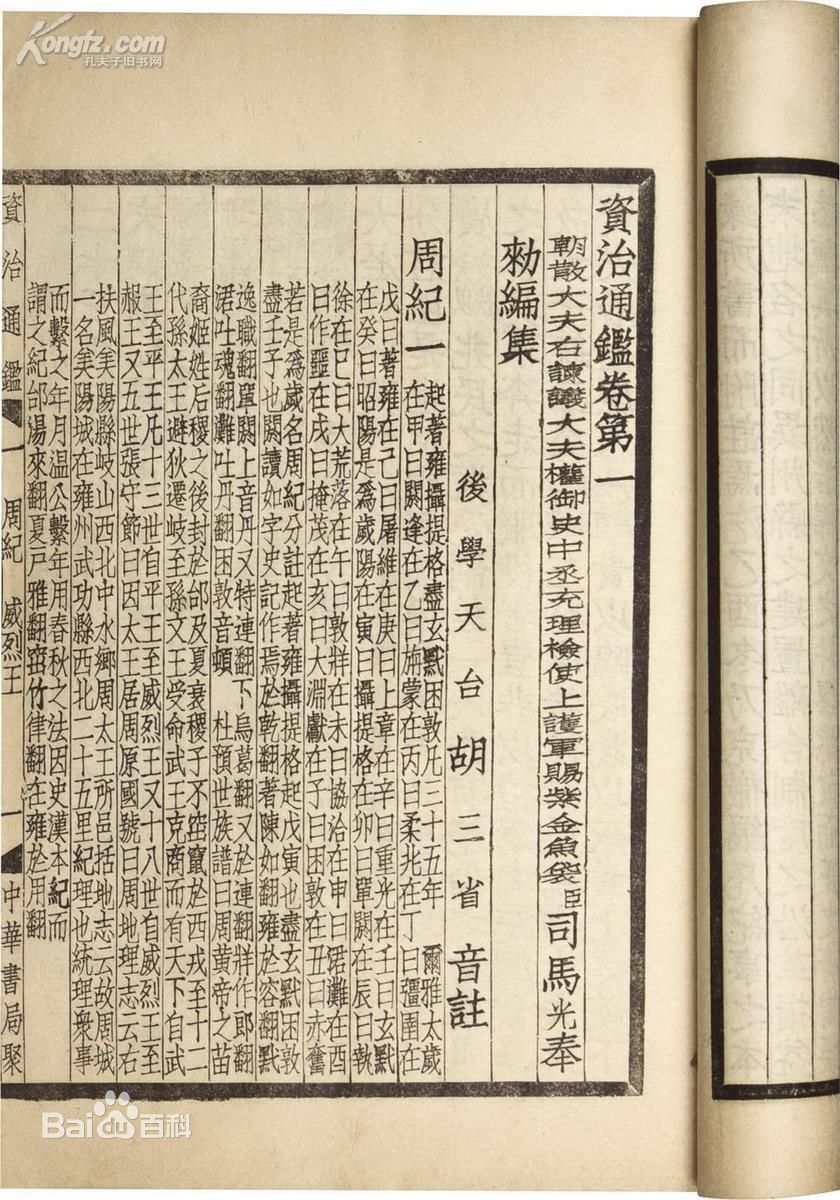 Kongfz.com
孔夫子旧书网
資治通鑑卷第一
朝散大夫右諫議大夫權御史中丞充理檢使上護軍賜紫金魚袋臣司馬光奉
勑編集
後學天台胡三省音註
周紀一
起著雍攝提格盡玄黓困敦凡三十五年 爾雅太歲
在甲曰閼逢在乙曰旃蒙在丙曰柔兆在丁曰彊圉在
戊曰著雍在己曰屠維在庚曰上章在辛曰重光在壬曰玄黓
在癸曰昭陽是爲歲陽在寅曰攝提格在卯曰單閼在辰曰執
徐在巳曰大荒落在午曰敦牂在未曰協洽在申曰涒灘在酉
曰作噩在戌曰掩茂在亥曰大淵獻在子曰困敦在丑曰赤奮
若是爲歲名周紀分註起著雍攝提格起戊寅也盡玄黓困敦
盡壬子也閼讀如字史記作焉於乾翻著陳如翻雍於容翻黓
逸職翻單閼上音丹又特連翻下烏葛翻又於連翻牂作郎翻
涒吐魂翻灘吐丹翻困敦音頓 杜預世族譜曰周黃帝之苗
裔姬姓后稷之後封於邰及夏衰稷子不窋竄於西戎至十二
代孫太王避狄遷岐至孫文王受命武王克商而有天下自武
王至平王凡十三世自平王至威烈王又十八世自威烈王至
赧王又五世張守節曰因太王居周原國號曰周地理志云右
扶風美陽縣岐山西北中水鄉周太王所邑括地志云故周城
一名美陽城在雍州武功縣西北二十五里紀理也統理衆事
而繫之年月溫公繫年用春秋之法因史漢本紀而
謂之紀邰湯來翻夏戶雅翻窋竹律翻在雍於用翻
資治通鑑 一 周紀 威烈王 一 中華書局聚
Baidu百科